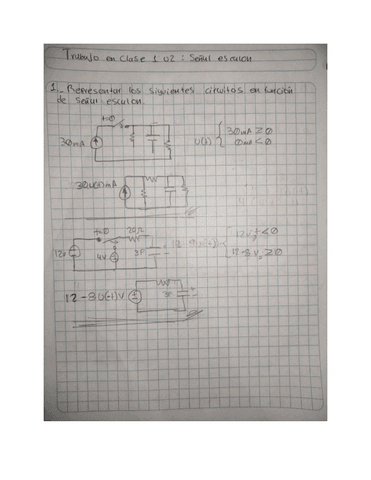 Trabajo en clase 1 U2 : Señal escalon
1._ Representar los siguientes circuitos en función
de Señal escalon.
t=0
30mA
U(t) { 30mA ≥ 0
0mA < 0
30u(t)mA
t=0
20Ω
12v
4V
12V, t<0
12-8v, ≥0
12-8u(-t)V